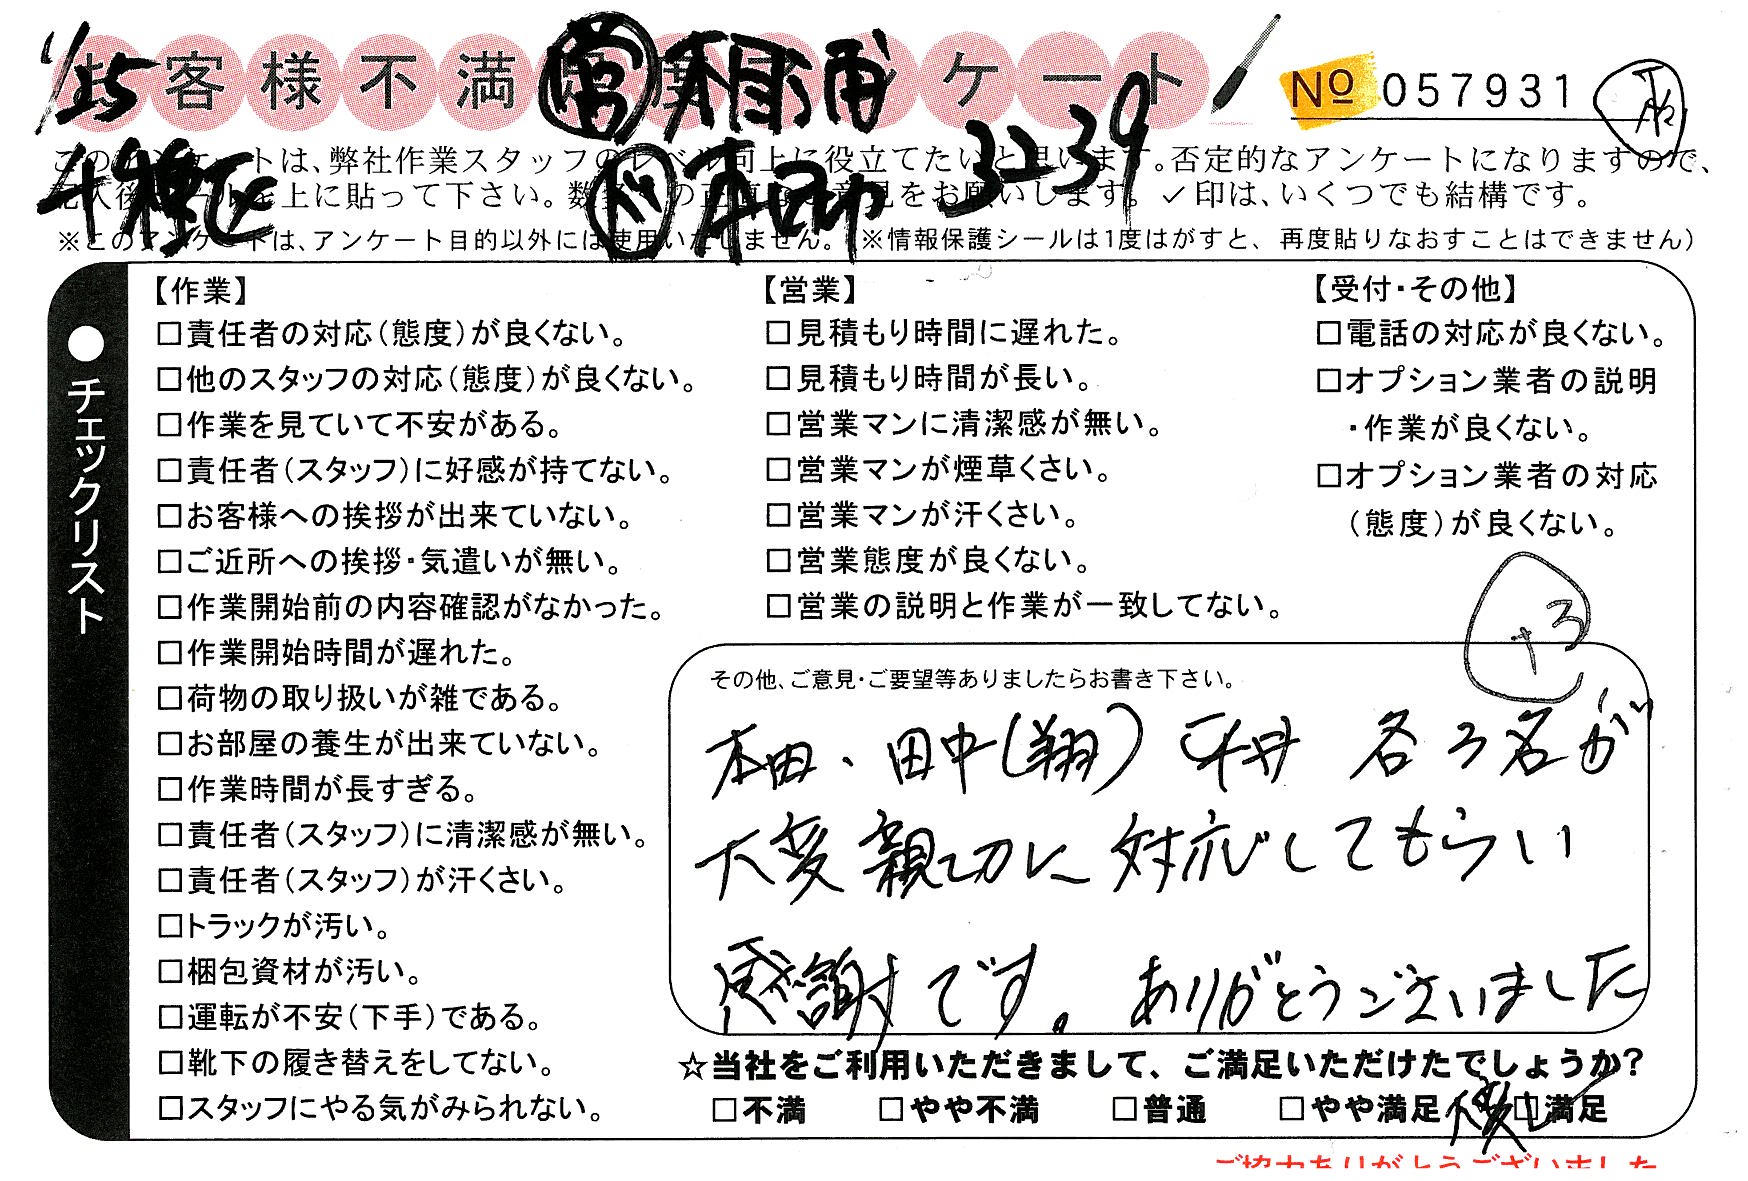 1/25
お客様不満足度アンケート
No 057931
営 相浦
千種区
ド 本田 3239
このアンケートは、弊社作業スタッフのレベル向上に役立てたいと思います。否定的なアンケートになりますので、
記入後シールを上に貼って下さい。数多くの正直なご意見をお願いします。✓印は、いくつでも結構です。
※このアンケートは、アンケート目的以外には使用いたしません。(※情報保護シールは1度はがすと、再度貼りなおすことはできません)
●チェックリスト
【作業】
□責任者の対応(態度)が良くない。
□他のスタッフの対応(態度)が良くない。
□作業を見ていて不安がある。
□責任者(スタッフ)に好感が持てない。
□お客様への挨拶が出来ていない。
□ご近所への挨拶・気遣いが無い。
□作業開始前の内容確認がなかった。
□作業開始時間が遅れた。
□荷物の取り扱いが雑である。
□お部屋の養生が出来ていない。
□作業時間が長すぎる。
□責任者(スタッフ)に清潔感が無い。
□責任者(スタッフ)が汗くさい。
□トラックが汚い。
□梱包資材が汚い。
□運転が不安(下手)である。
□靴下の履き替えをしてない。
□スタッフにやる気がみられない。
【営業】
□見積もり時間に遅れた。
□見積もり時間が長い。
□営業マンに清潔感が無い。
□営業マンが煙草くさい。
□営業マンが汗くさい。
□営業態度が良くない。
□営業の説明と作業が一致してない。
【受付・その他】
□電話の対応が良くない。
□オプション業者の説明
・作業が良くない。
□オプション業者の対応
(態度)が良くない。
+3
その他、ご意見・ご要望等ありましたらお書き下さい。
本田、田中(翔) 平井 各3名が
大変親切に対応してもらい
感謝です。ありがとうございました
☆当社をご利用いただきまして、ご満足いただけたでしょうか?
□不満 □やや不満 □普通 □やや満足 大変 □満足
ご協力ありがとうございました